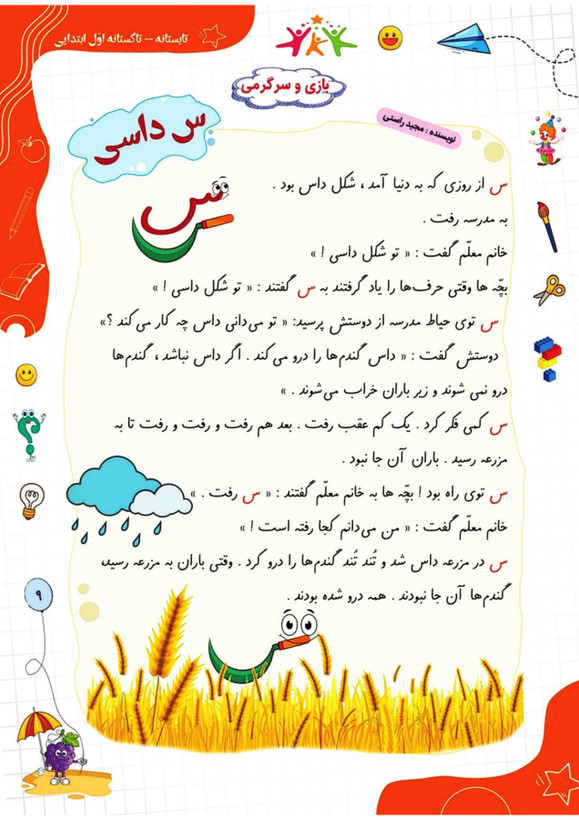 تابستانه – تاکستانه اوّل ابتدایی
بازی و سرگرمی
س داسی
نویسنده : مجید راستی
س از روزی که به دنیا آمد ، شکل داس بود .
به مدرسه رفت .
خانم معلّم گفت : « تو شکل داسی ! »
بچّه ها وقتی حرف‌ها را یاد گرفتند به س گفتند : « تو شکل داسی ! »
س توی حیاط مدرسه از دوستش پرسید: « تو می‌دانی داس چه کار می‌کند ؟»
دوستش گفت : « داس گندم‌ها را درو می‌کند . اگر داس نباشد ، گندم‌ها
درو نمی شوند و زیر باران خراب می‌شوند . »
س کمی فکر کرد . یک کم عقب رفت . بعد هم رفت و رفت و رفت تا به
مزرعه رسید . باران آن جا نبود .
س توی راه بود ! بچّه ها به خانم معلّم گفتند : « س رفت . »
خانم معلّم گفت : « من می‌دانم کجا رفته است ! »
س در مزرعه داس شد و تُند تُند گندم‌ها را درو کرد . وقتی باران به مزرعه رسید،
گندم‌ها آن جا نبودند . همه درو شده بودند .
س
۹